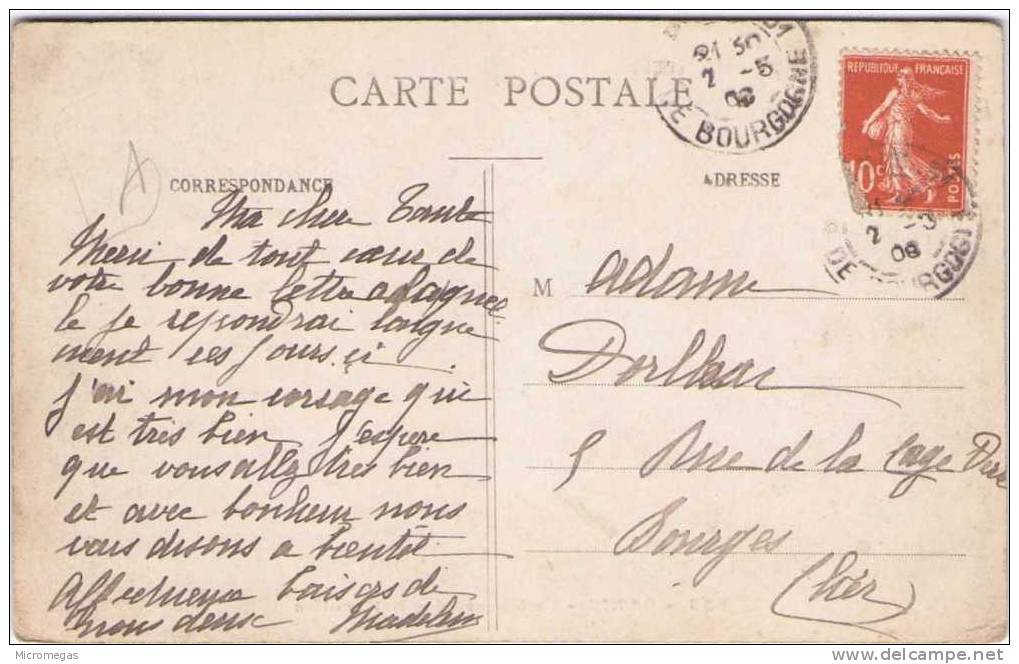 CARTE POSTALE
CORRESPONDANCE
Ma chere Tante
Merci de tout cœur de
votre bonne lettre a laquel
le je repondrai longue
ment ces jours ci
j'ai mon corsage qui
est tres bien j'espere
que vous allez tres bien
et avec bonheur nous
vous disons a bientôt
Affectueux baisers de
nous deux
ADRESSE
Madame
5 Rue de la Cage
Bourges
(Cher)
REPUBLIQUE FRANÇAISE
10c
POSTES
2 -5
08
DE BOURGOGNE
2 -5
08
DE BOURGOGNE
Micromegas
www.delcampe.net